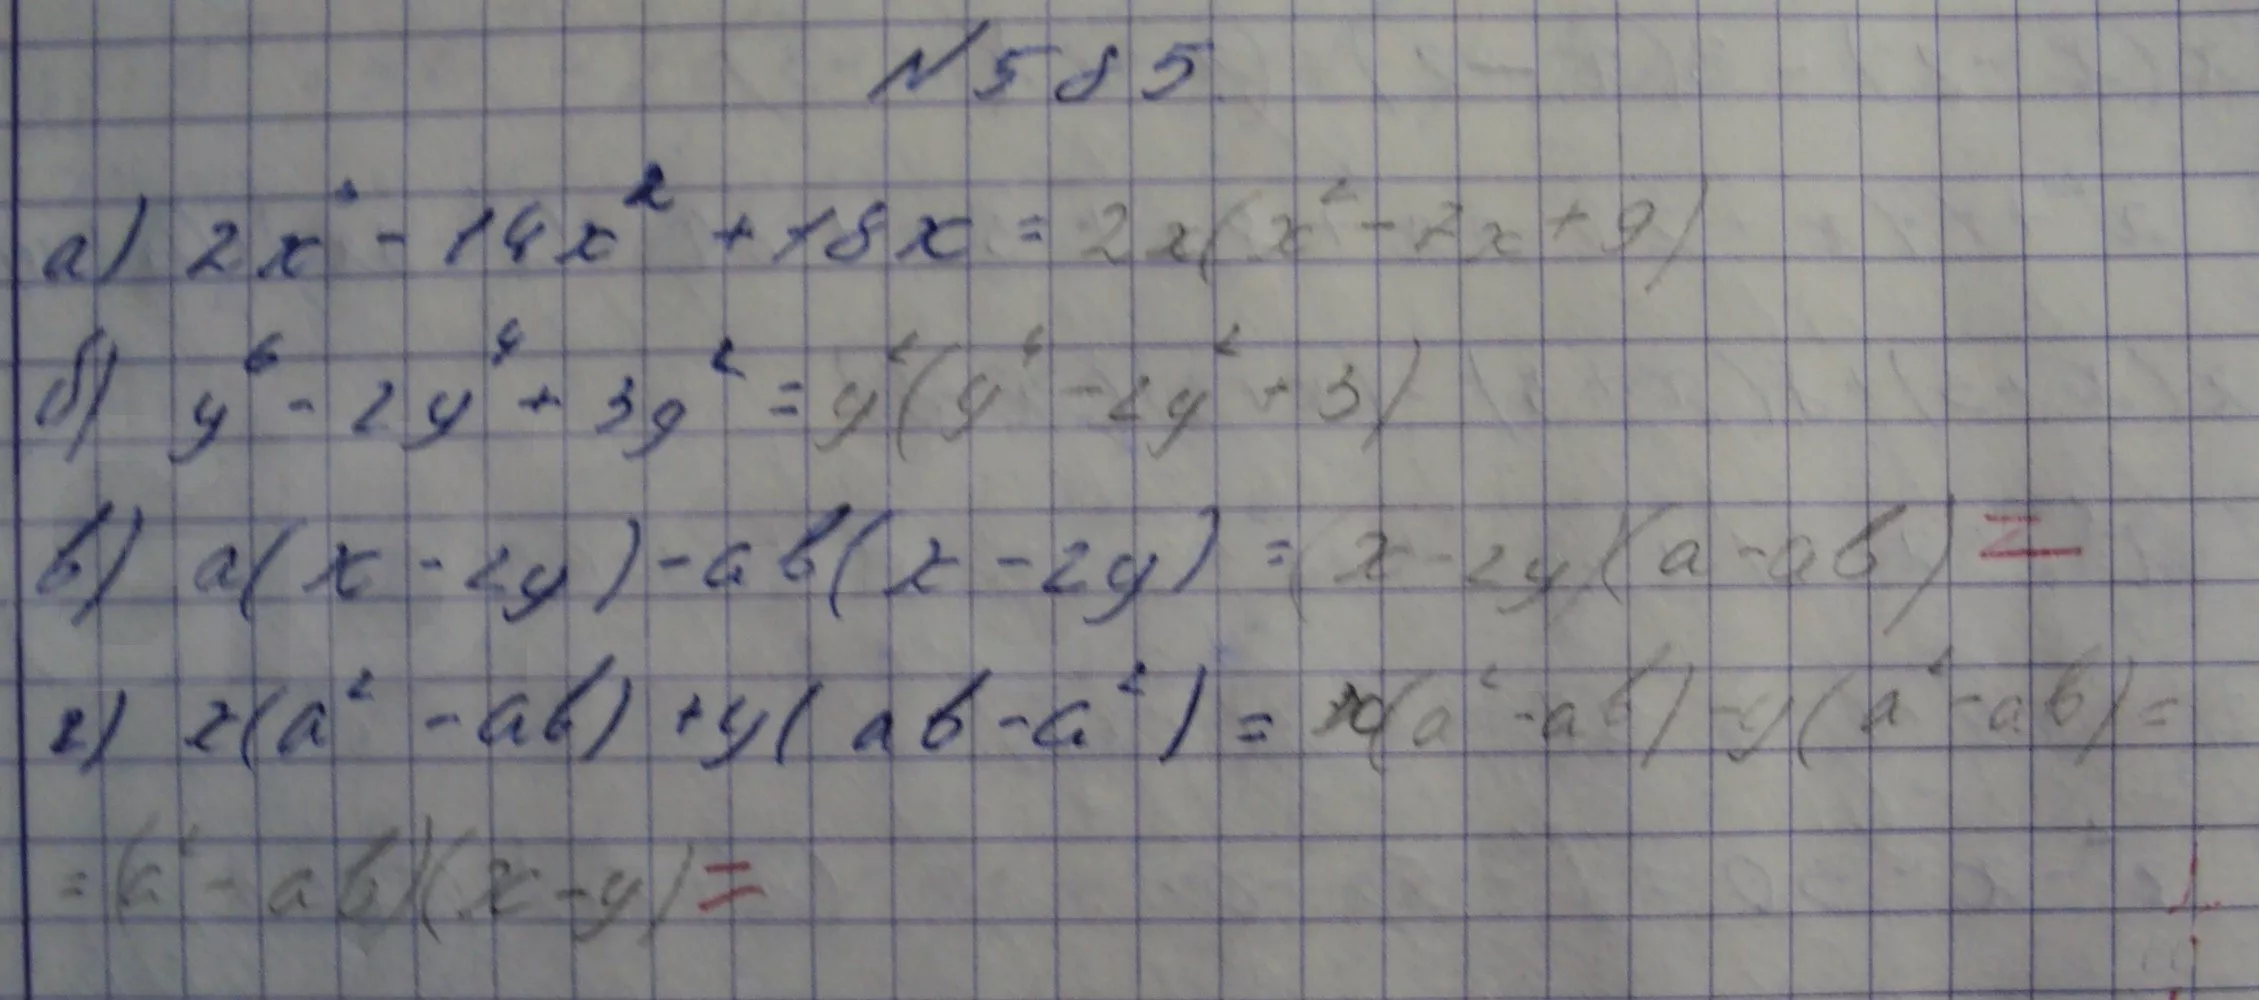 № 585
а) 2x³ - 14x² + 18x = 2x(x² - 7x + 9)
б) y⁶ - 2y⁴ + 3y² = y²(y⁴ - 2y² + 3)
в) a(x - 2y) - ab(x - 2y) = (x - 2y)(a - ab) =
г) x(a² - ab) + y(ab - a²) = x(a² - ab) - y(a² - ab) =
= (a² - ab)(x - y) =